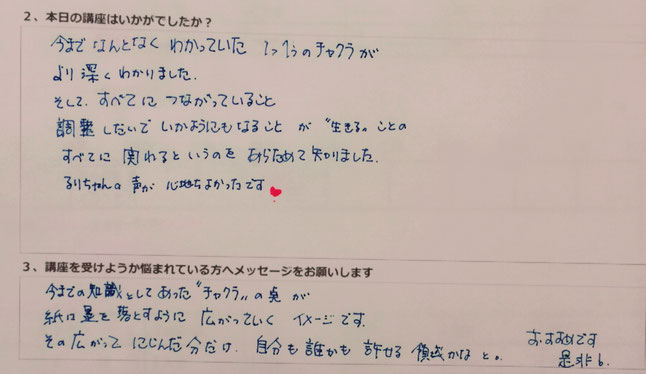 2、本日の講座はいかがでしたか？
今まで なんとなく わかっていた 1つ1つのチャクラが
より 深く わかりました.
そして. すべてに つながっていること
調整 しだいで いかようにもなること が "生きる" ことの
すべてに 関れるというのを あらためて 知りました.
るりちゃんの 声が 心地ちよかったです
3、講座を受けようか悩まれている方へメッセージをお願いします
今までの知識としてあった "チャクラ" の 点 が
紙に 墨を 落とすように 広がっていく イメージです.
その 広がって にじんだ 分だけ. 自分も 誰かも 許せる 領域かな と。
おすすめです
是非